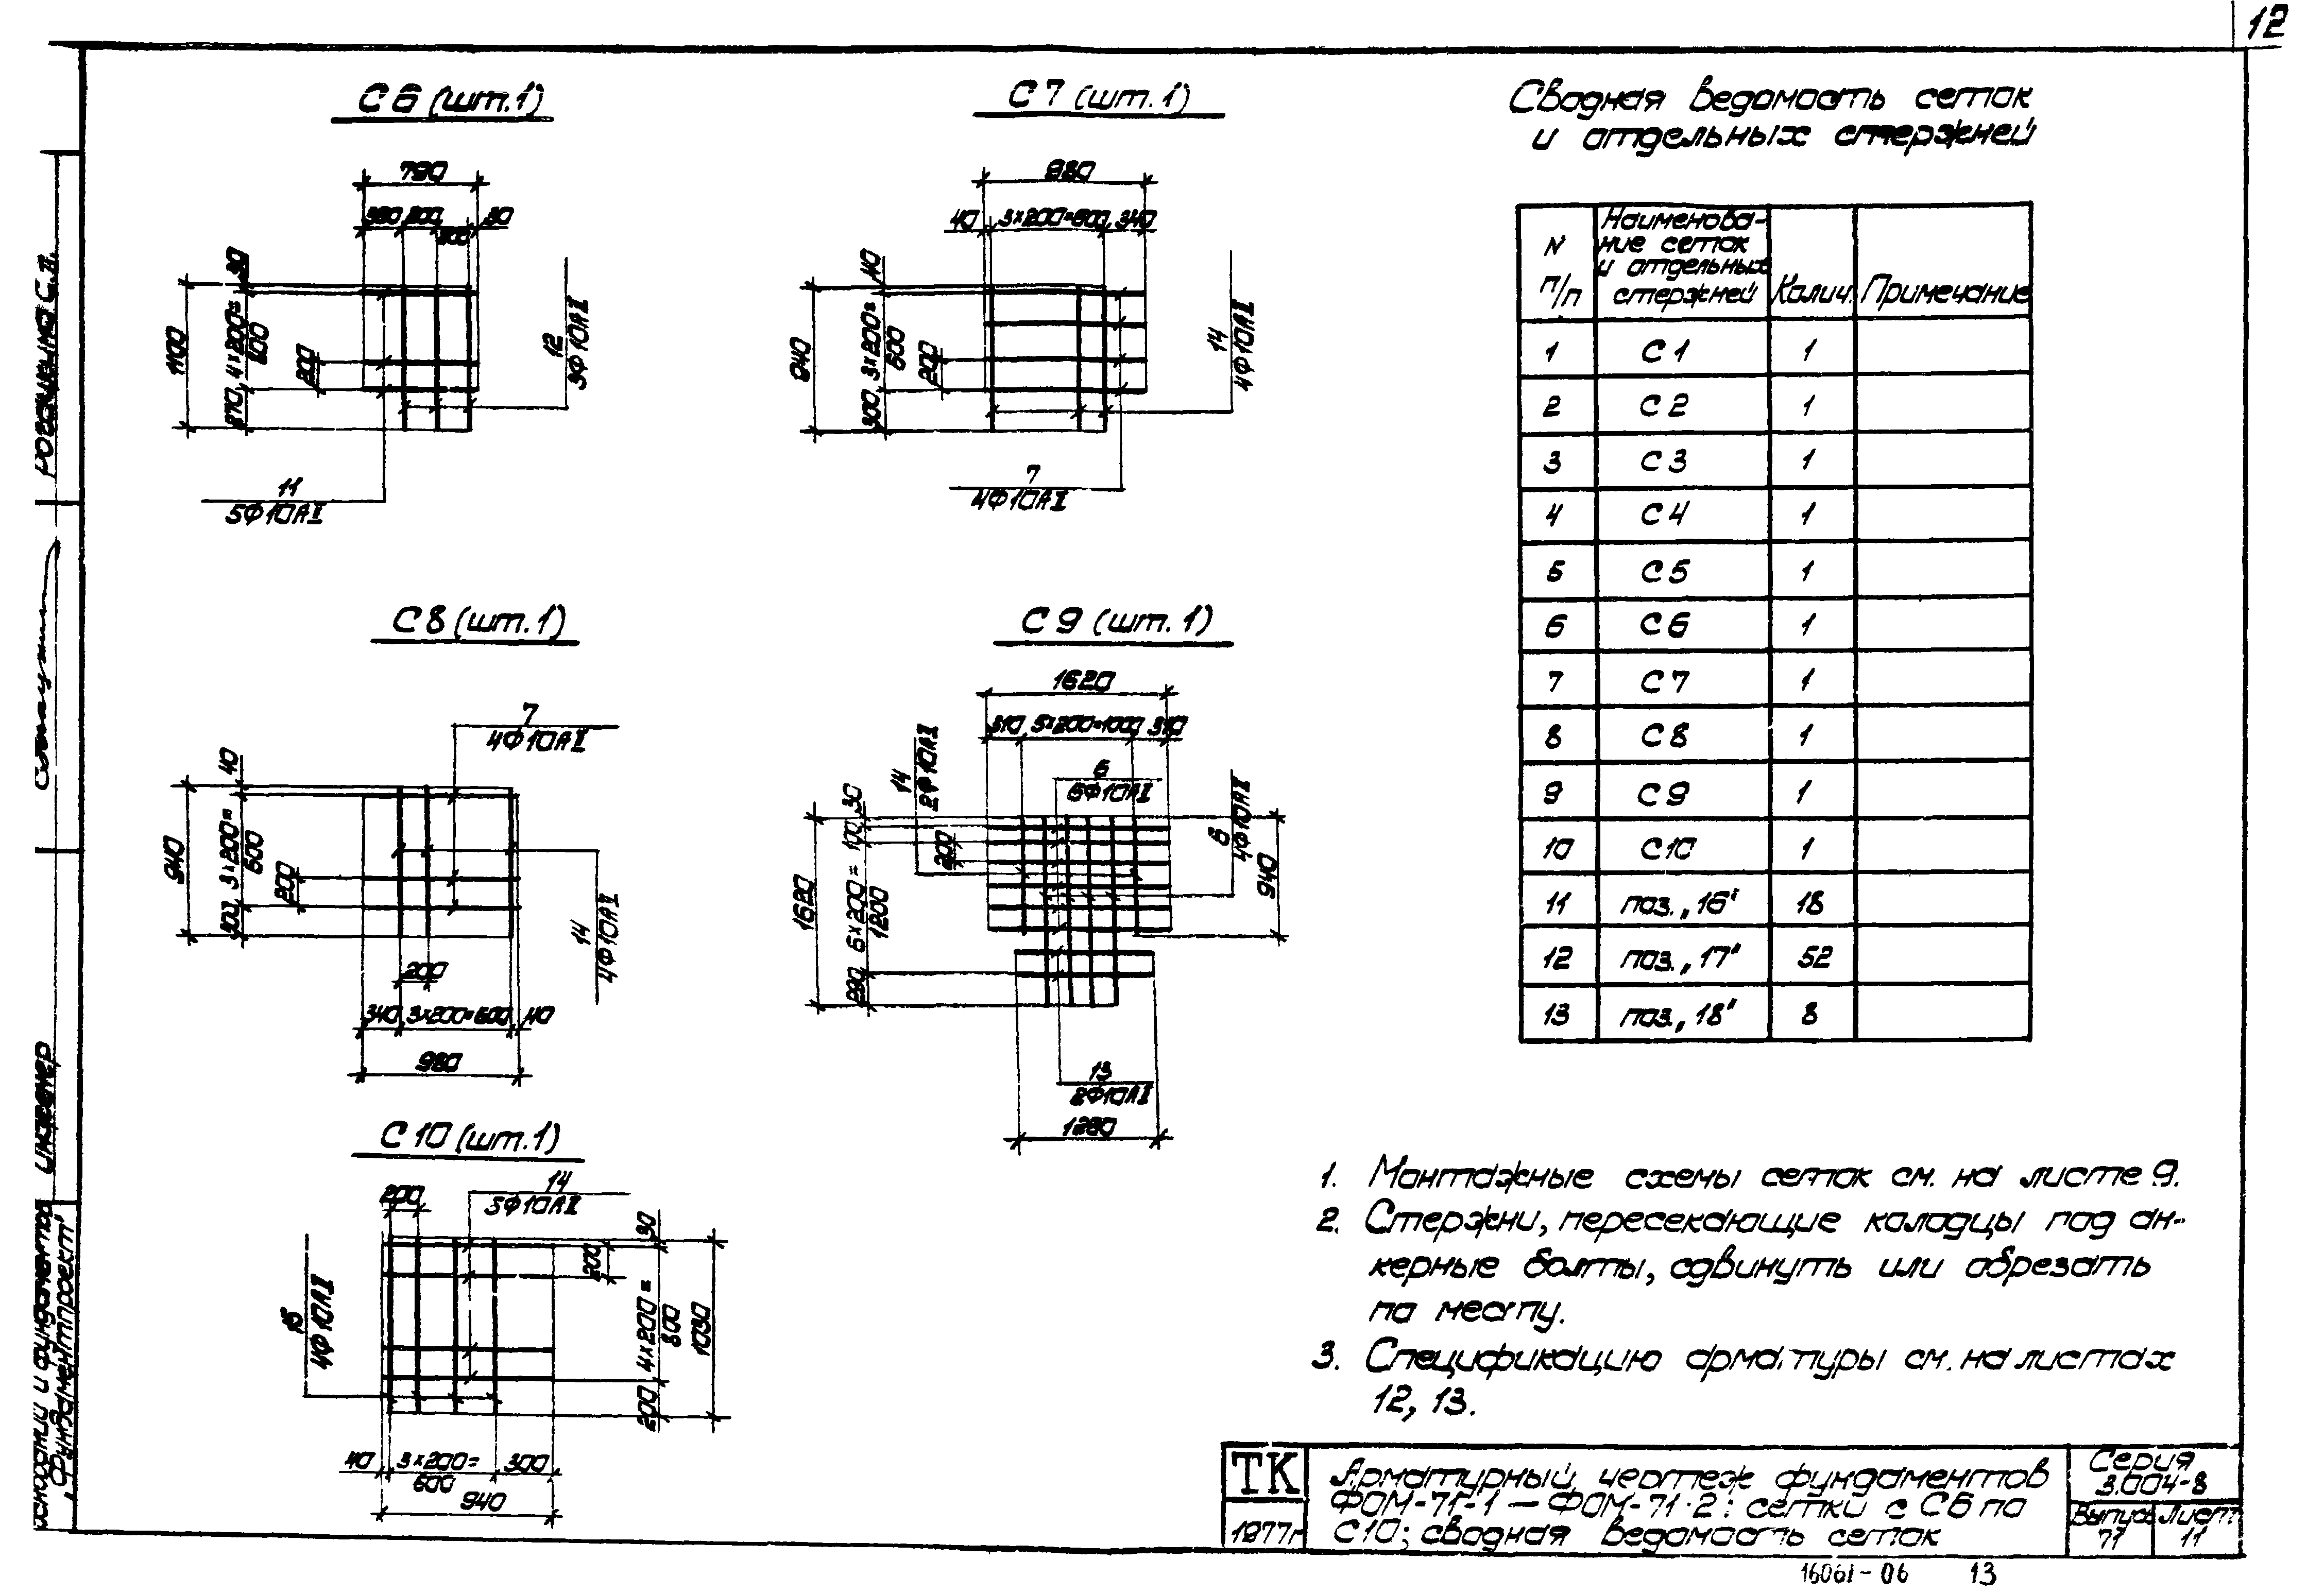 12
С 6 (шт.1)
790
200
30
1100
30
4×200=
800
270
200
12
3Ф10АII
11
5Ф10АII
С 7 (шт.1)
980
40 3×200=600 340
940
40
3×200=
600
300
200
14
4Ф10АII
7
4Ф10АII
Сводная ведомость сеток
и отдельных стержней
N п/п
Наименова-
ние сеток
и отдельных
стержней
Колич.
Примечание
1 С 1 1
2 С 2 1
3 С 3 1
4 С 4 1
5 С 5 1
6 С 6 1
7 С 7 1
8 С 8 1
9 С 9 1
10 С10 1
11 поз. „16" 18
12 поз. „17" 52
13 поз. „18" 8
С 8 (шт.1)
7
4Ф10АII
940
40
3×200=
600
300
200
14
4Ф10АII
200
340 3×200=600 40
980
С 9 (шт.1)
1620
310 5×200=1000 310
14
2Ф10АII
6
6Ф10АII
6
4Ф10АII
1620
30
100
6×200=
1200
290
200
940
13
2Ф10АII
1280
С 10 (шт.1)
200
14
5Ф10АII
15
4Ф10АII
30
200
4×200=
800
200
1030
40 3×200= 300
600
940
1. Монтажные схемы сеток см. на листе 9.
2. Стержни, пересекающие колодцы под ан-
керные болты, сдвинуть или обрезать
по месту.
3. Спецификацию арматуры см. на листах
12, 13.
ТК
1977г
Арматурный чертеж фундаментов
ФОМ-71-1 — ФОМ-71-2: сетки с С6 по
С10; сводная ведомость сеток
Серия
3.004-8
Выпуск
71
Лист
11
16061-06 13
инженер
оснований и фундаментов
„Фундаментпроект"